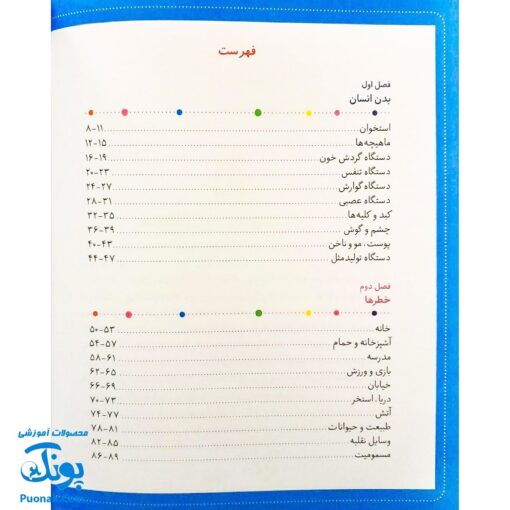 فهرست
فصل اول
بدن انسان
استخوان ۸-۱۱
ماهیچه‌ها ۱۲-۱۵
دستگاه گردش خون ۱۶-۱۹
دستگاه تنفس ۲۰-۲۳
دستگاه گوارش ۲۴-۲۷
دستگاه عصبی ۲۸-۳۱
کبد و کلیه‌ها ۳۲-۳۵
چشم و گوش ۳۶-۳۹
پوست، مو و ناخن ۴۰-۴۳
دستگاه تولیدمثل ۴۴-۴۷
فصل دوم
خطرها
خانه ۵۰-۵۳
آشپزخانه و حمام ۵۴-۵۷
مدرسه ۵۸-۶۱
بازی و ورزش ۶۲-۶۵
خیابان ۶۶-۶۹
دریا، استخر ۷۰-۷۳
آتش ۷۴-۷۷
طبیعت و حیوانات ۷۸-۸۱
وسایل نقلیه ۸۲-۸۵
مسمومیت ۸۶-۸۹
محصولات آموزشی
پونک